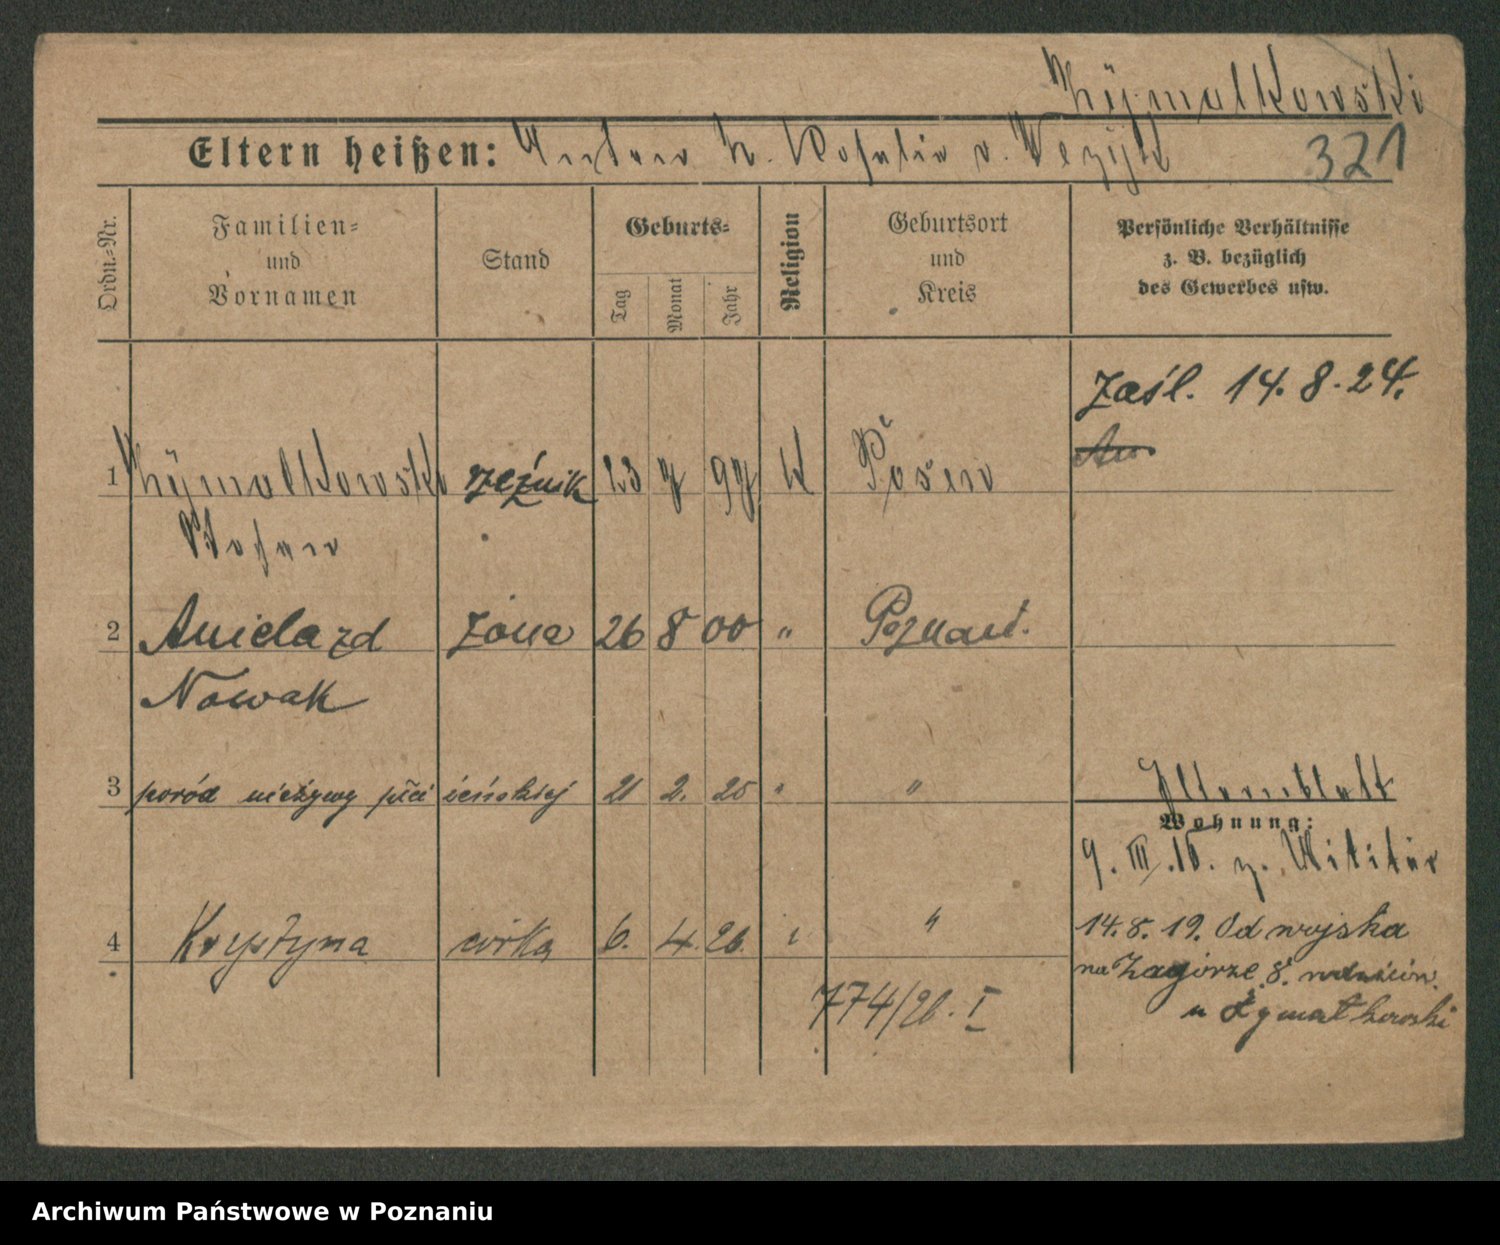 Zÿmalkowski
Eltern heißen: Anton Z. Rosalie v. Wezyk 321
Ordn.-Nr.
Familien-
und
Vornamen
Stand
Geburts-
Tag
Monat
Jahr
Religion
Geburtsort
und
Kreis
Persönliche Verhältnisse
z. B. bezüglich
des Gewerbes usw.
Zaśl. 14. 8. 24.
1 Zÿmalkowski rzeźnik 23 7 97 K Posen
2 Aniela zd żona 26 8 00 " Poznań.
Nowak
3 poród nieżywy płci żeńskiej 21 2. 25 " "
Elternblatt
Wohnung:
9. III. 16. z. Militär
4 Krystyna córka 6. 4. 26. "
14. 8. 19. Od wojska
na Zagórze 8.
u Żymałkowski
774/26. I
Archiwum Państwowe w Poznaniu